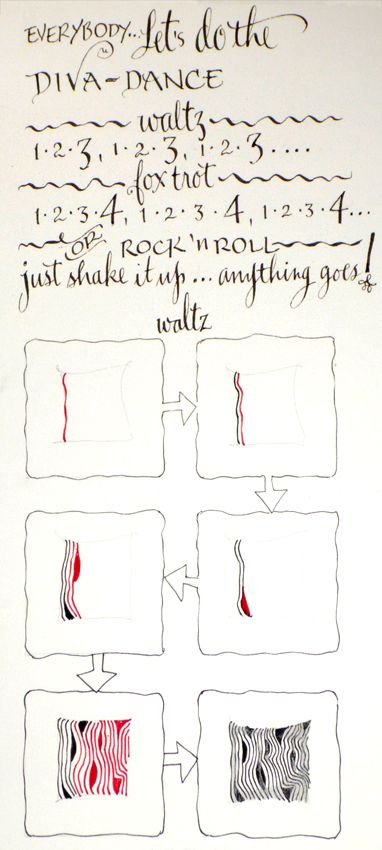 EVERYBODY... Let's do the
DIVA-DANCE
waltz
1·2·3, 1·2·3, 1·2·3....
foxtrot
1·2·3·4, 1·2·3·4, 1·2·3·4...
OR ROCK 'n ROLL
just shake it up... anything goes!
waltz